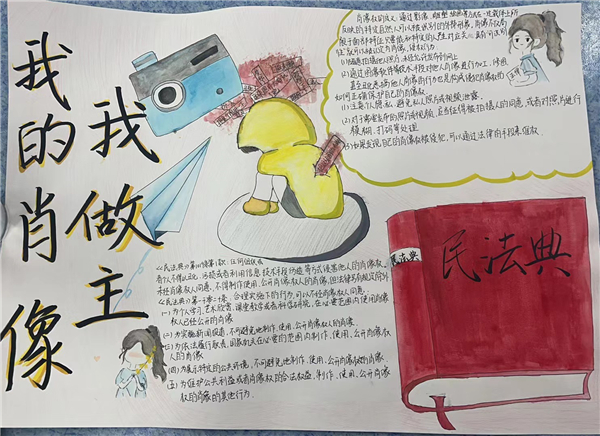 我的肖像
我做主
肖像权的含义：通过影像、雕塑、绘画等方式在一定载体上所
反映的特定自然人可以被识别的外部形象。肖像不仅局
限于面部特征,只要能和特定的人产生对应关
(2)通过图像软件等技术手段对他人肖像进行加工、修改
甚至
如何正确保护自己的肖像权
(1)注意个人隐私,避免私人照片或视频泄露.
(2)对于需要发布的照片或视频,应当征得被拍摄人的同意,或者对照片进行
模糊、打码等处理
(3)如果发现自己的肖像权被侵犯,可以通过法律的手段来维权.
民法典
民法典
未经肖像权人同意,不得制作、使用、公开肖像权人的肖像,但法律另有规定除外
合理实施下列行为,可以不经肖像权人同意:
(一)为个人学习、艺术欣赏、课堂教学或者科学研究,在必要范围内使用肖像
权人已经公开的肖像
(二)为实施新闻报道,不可避免地制作、使用、公开肖像权人的肖像.
(三)为依法履行职责,国家机关在必要的范围内制作、使用、公开肖像权
人的肖像
(四)为展示特定的公共环境,不可避免地制作、使用、公开肖像权人的肖像.
(五)为维护公共利益或者肖像权人的合法权益,制作、使用、公开肖像
权人的肖像的其他行为.